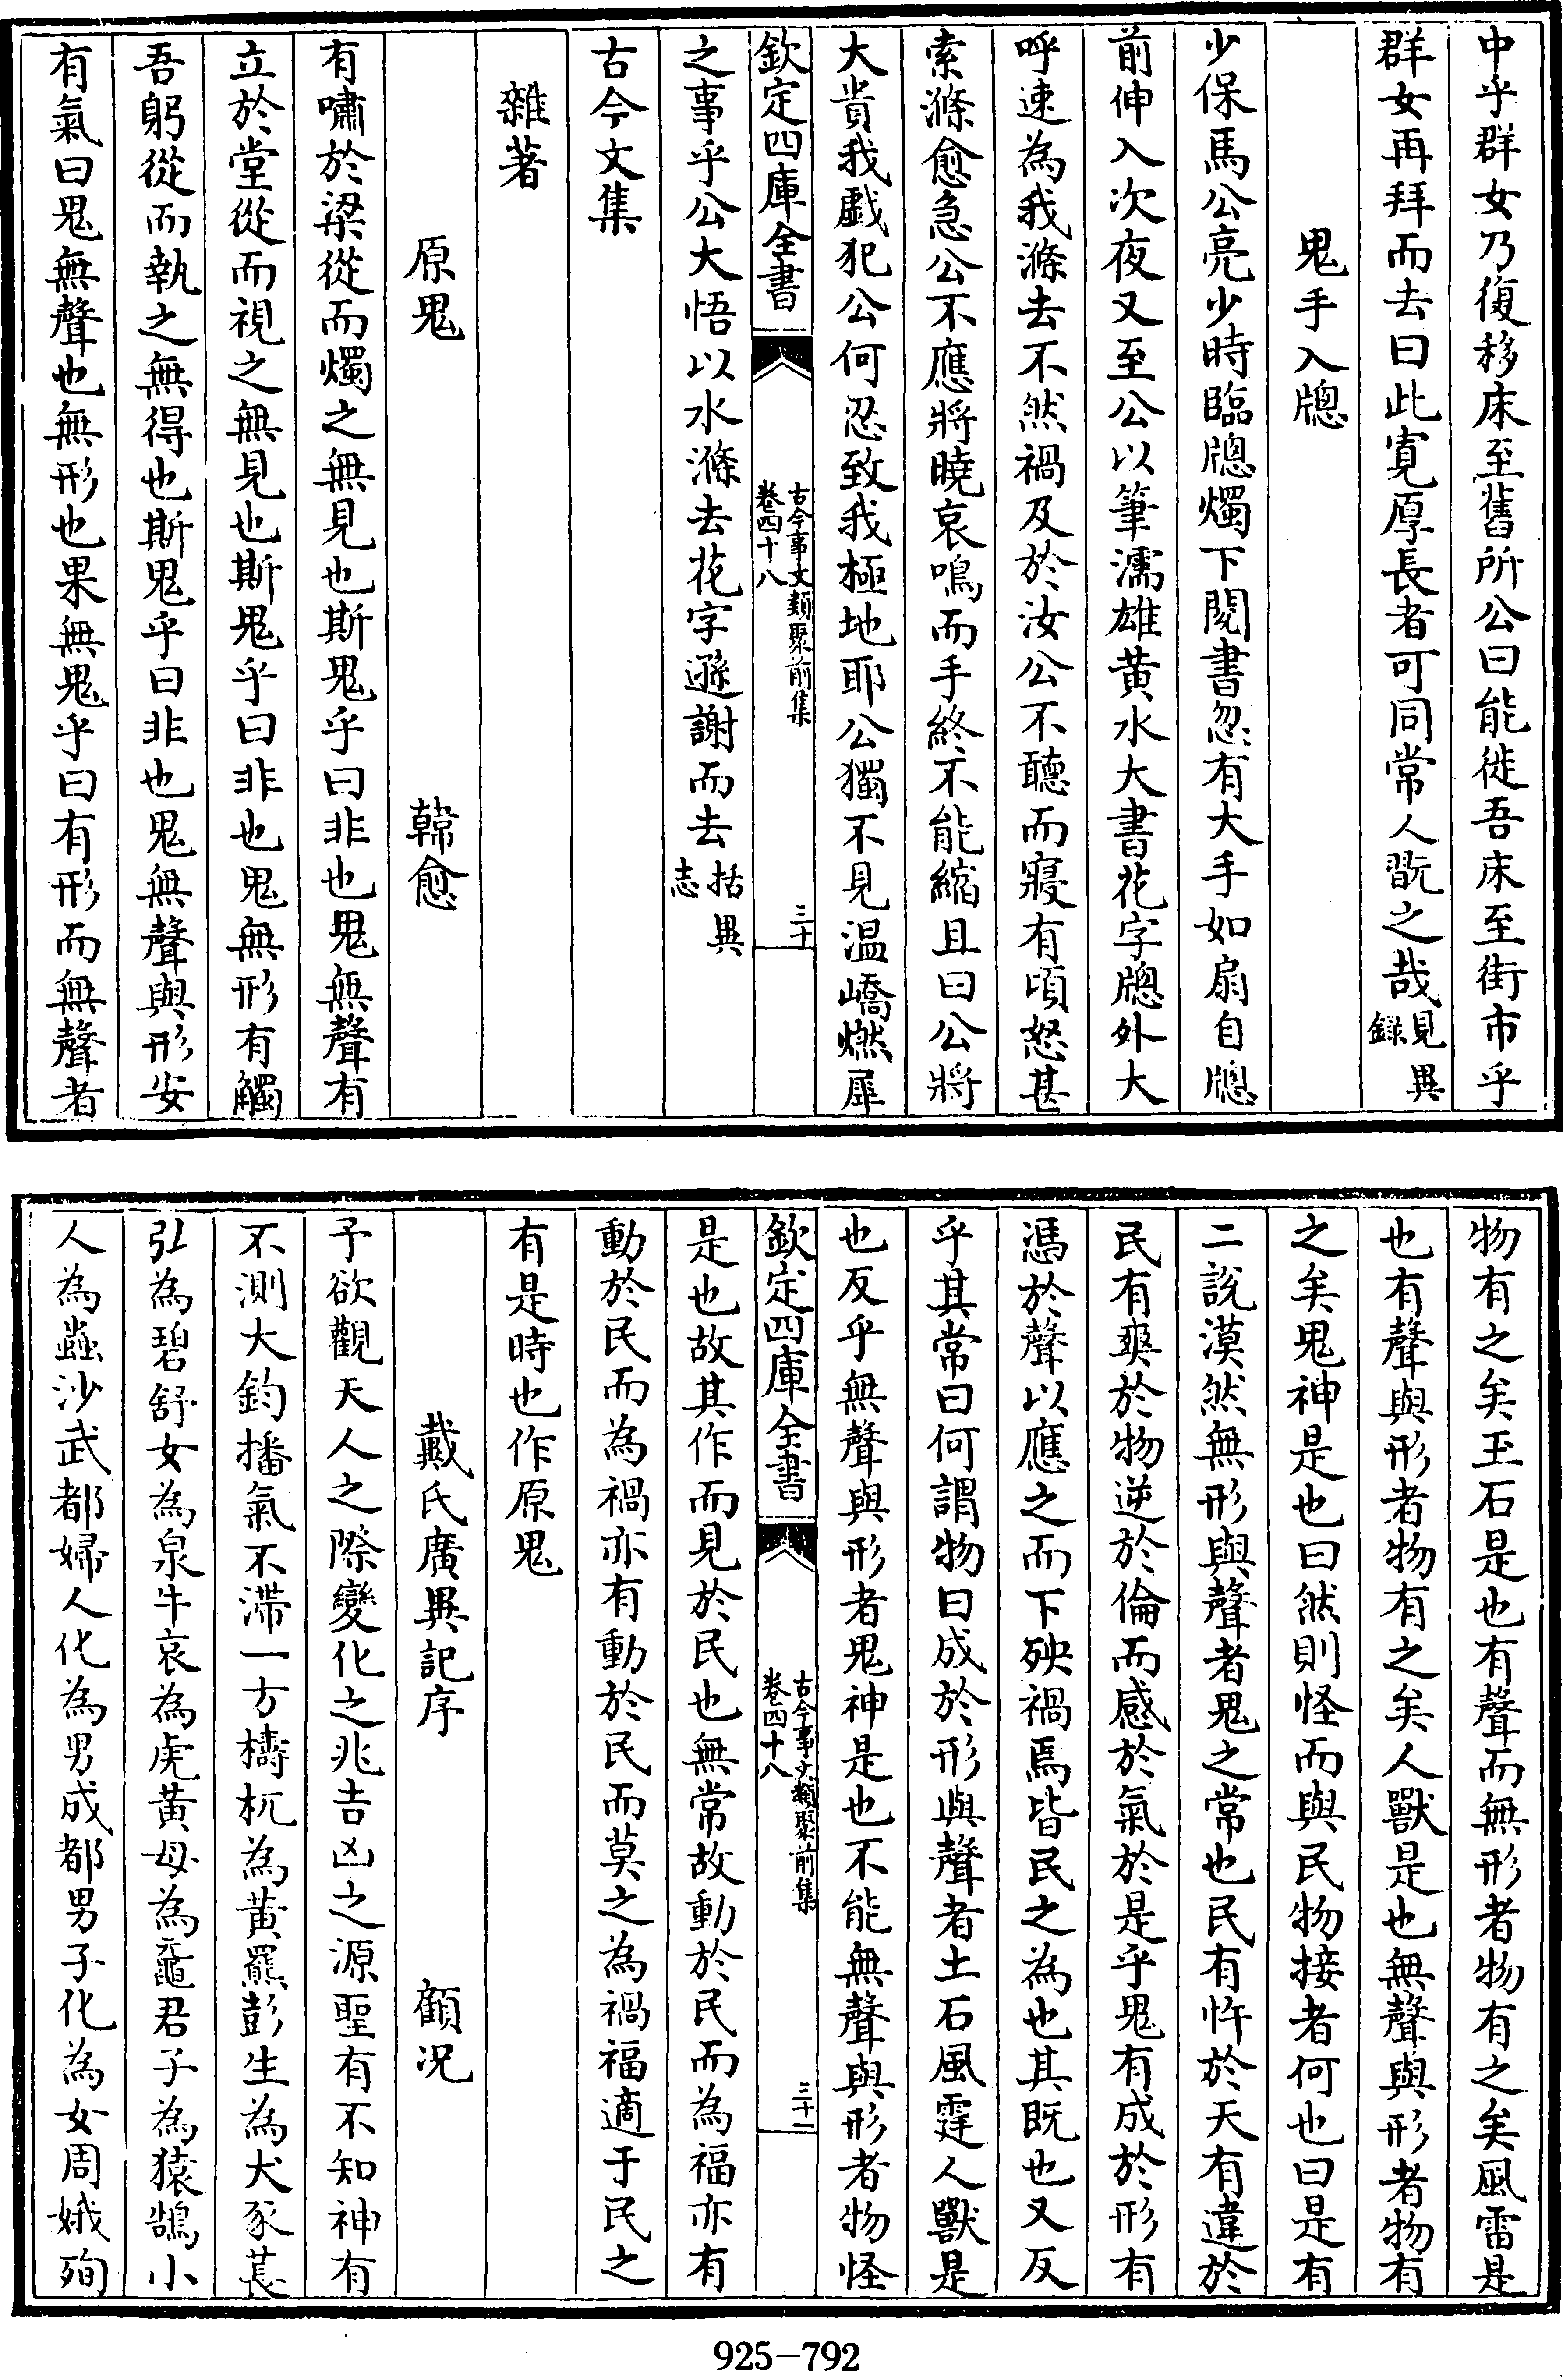 中乎群女乃復移床至舊所公曰能徙吾床至街市乎
群女再拜而去曰此寛厚長者可同常人翫之哉見異錄
鬼手入牕
少保馬公亮少時臨牕燭下閱書忽有大手如扇自牕
前伸入次夜又至公以筆濡雄黄水大書花字牕外大
呼速為我滌去不然禍及於汝公不聽而寢有頃怒甚
索滌愈急公不應將曉哀鳴而手終不能縮且曰公將
大貴我戯犯公何忍致我極地耶公獨不見温嶠燃犀
欽定四庫全書
古今事文類聚前集
卷四十八
三十
之事乎公大悟以水滌去花字遜謝而去括異志
古今文集
雜著
原鬼 韓愈
有嘯於梁從而燭之無見也斯鬼乎曰非也鬼無聲有
立於堂從而視之無見也斯鬼乎曰非也鬼無形有觸
吾躬從而執之無得也斯鬼乎曰非也鬼無聲與形安
有氣曰鬼無聲也無形也果無鬼乎曰有形而無聲者
物有之矣玉石是也有聲而無形者物有之矣風雷是
也有聲與形者物有之矣人獸是也無聲與形者物有
之矣鬼神是也曰然則怪而與民物接者何也曰是有
二說漠然無形與聲者鬼之常也民有忤於天有違於
民有爽於物逆於倫而感於氣於是乎鬼有成於形有
馮於聲以應之而下殃禍焉皆民之為也其既也又反
乎其常曰何謂物曰成於形與聲者土石風霆人獸是
也反乎無聲與形者鬼神是也不能無聲與形者物怪
欽定四庫全書
古今事文類聚前集
卷四十八
三十一
是也故其作而見於民也無常故動於民而為福亦有
動於民而為禍亦有動於民而莫之為禍福適于民之
有是時也作原鬼
戴氏廣異記序 顧况
予欲觀天人之際變化之兆吉凶之源聖有不知神有
不測大鈞播氣不滯一方檮杌為黄羆彭生為犬豕萇
弘為碧舒女為泉牛哀為虎黄母為黿君子為猿鶴小
人為蟲沙武都婦人化為男成都男子化為女周娥殉
925-792